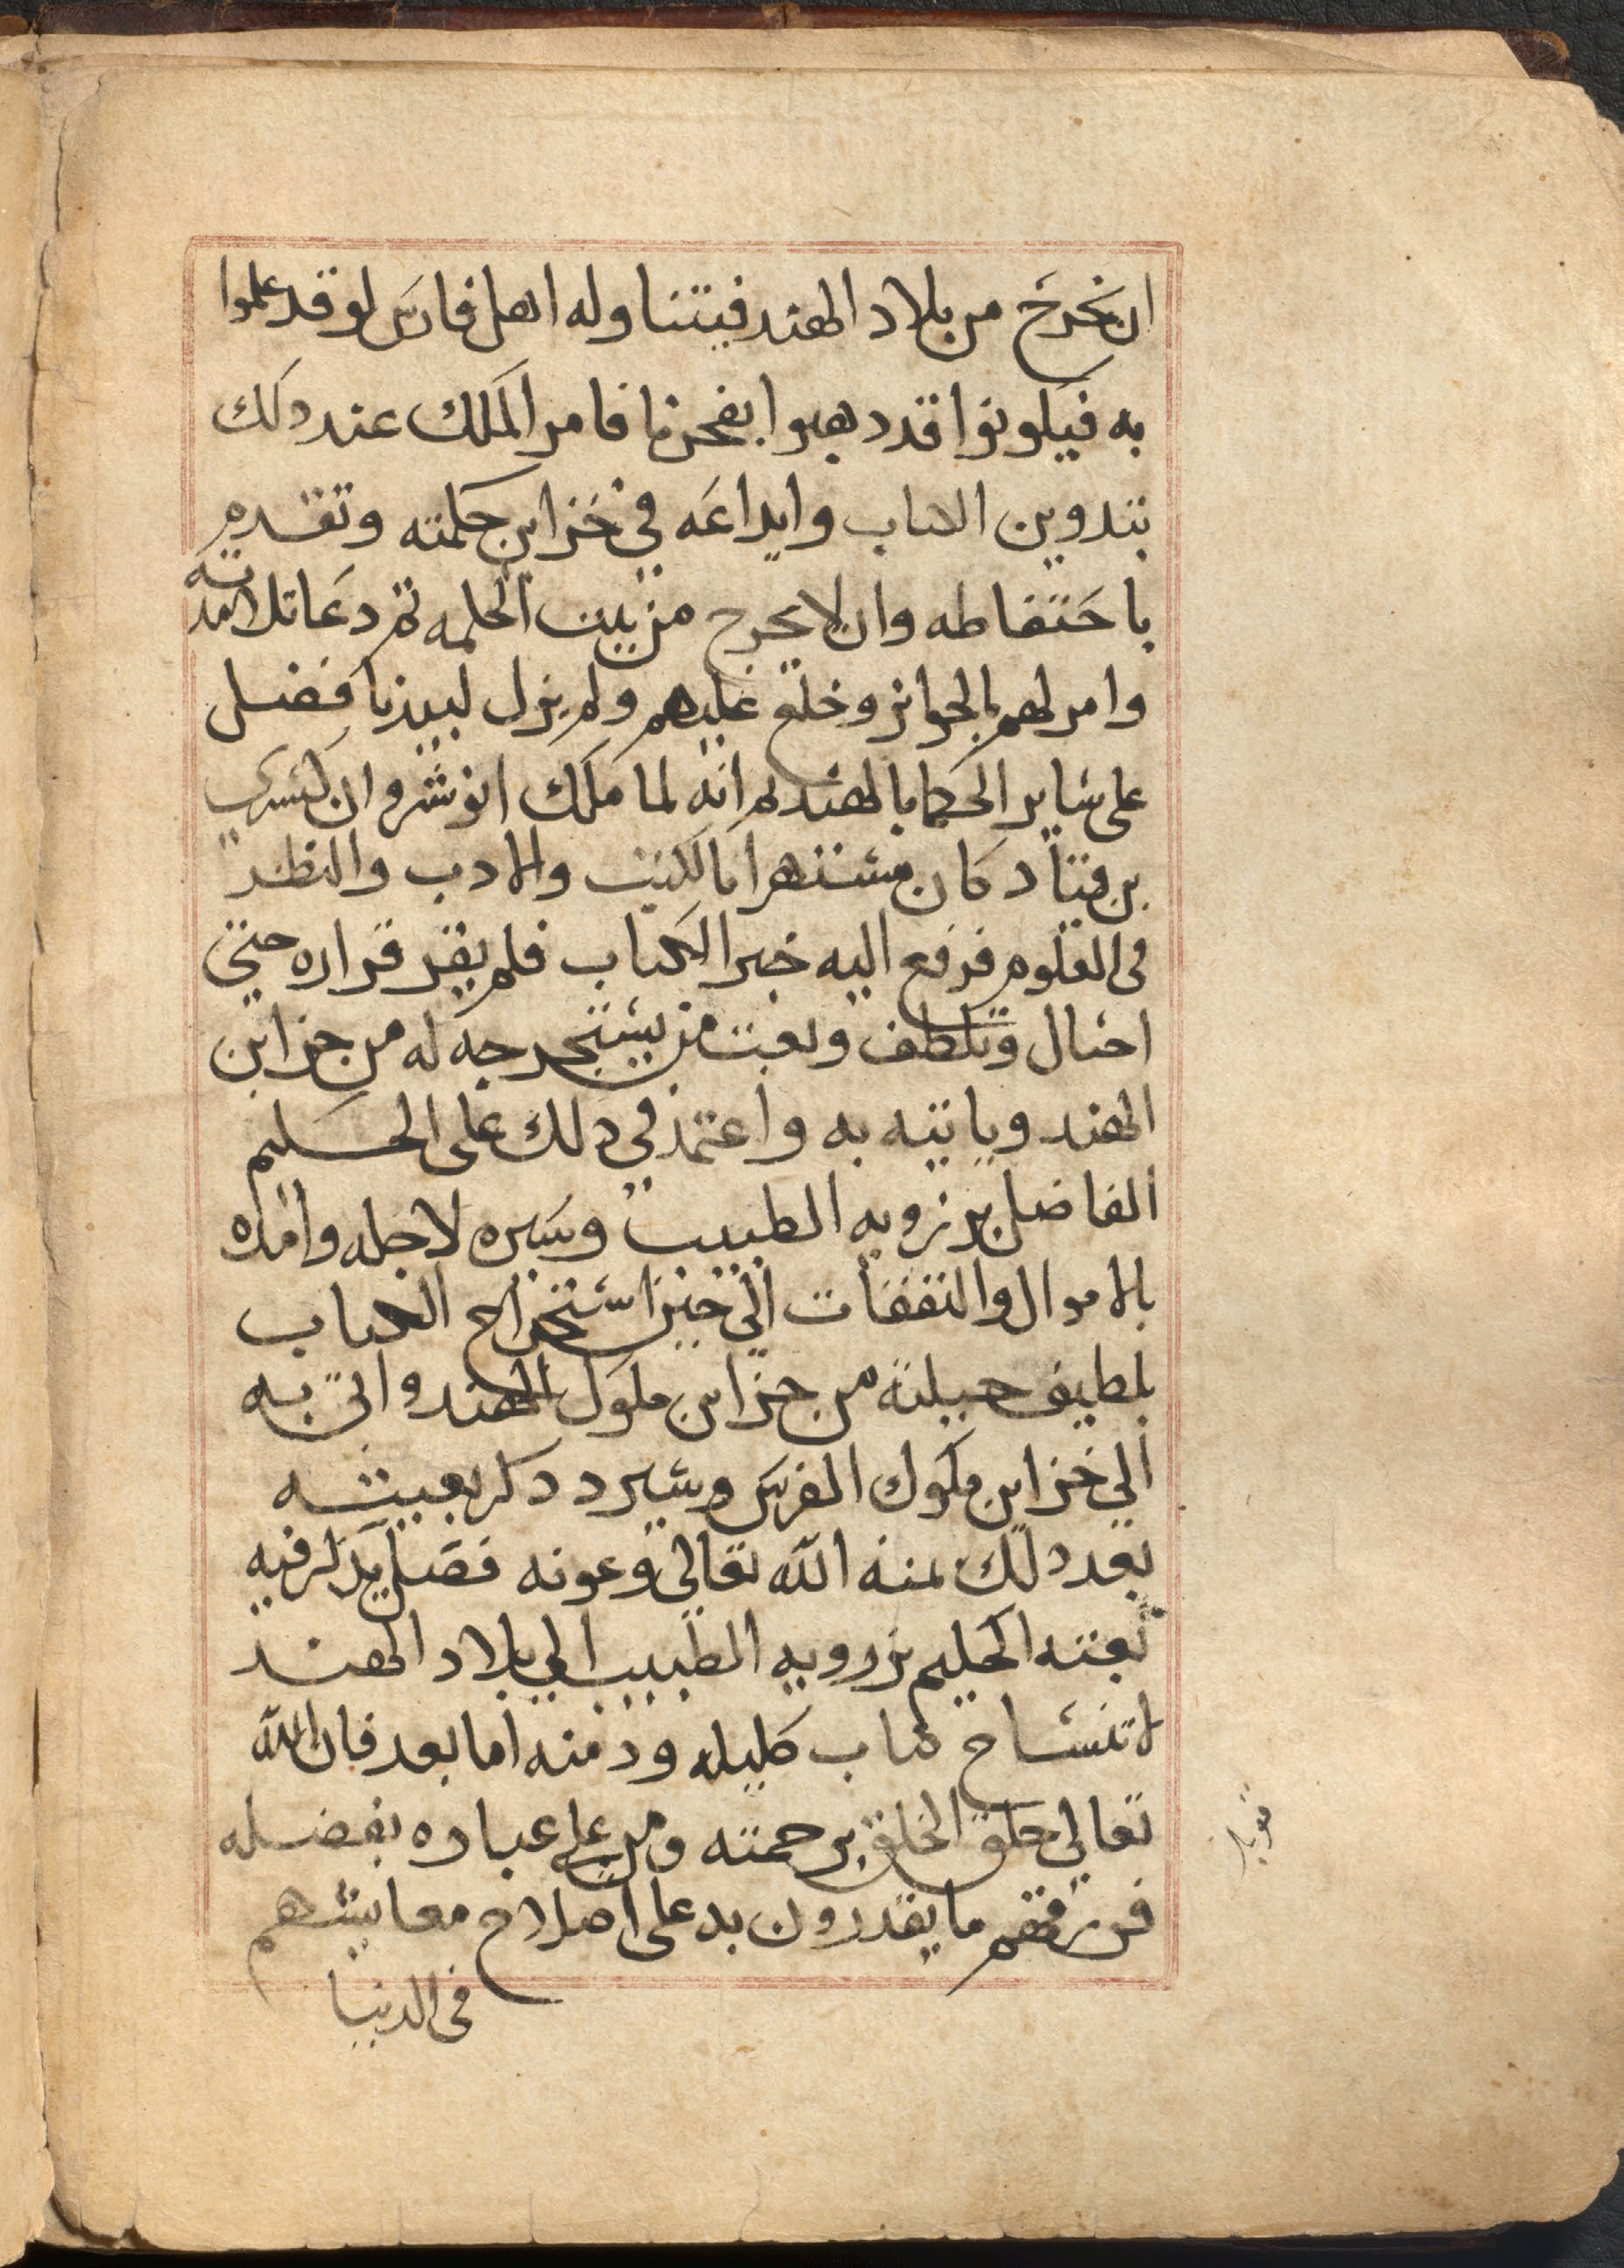 ان يخرج من بلاد الهند فيتناوله اهل فارس لو قد علموا
به فيكونوا قد دهبوا بفخرنا فامر الملك عند دلك
بتدوين الكتاب وايداعه في خزاين حكمته وتقدم
باحتفاطه وان لا يخرج من بيت الحكمه ثم دعا تلامدته
وامر لهم بالجوايز وخلع عليهم ولم يزل لبيدبا فضل
على ساير الحكما بالهند ثم انه لما ملك انوشروان كسرى
بن قباد كان مستهرا بالكتب والادب والنظر
في العلوم فرفع اليه خبر الكتاب فلم يقر قراره حتى
احتال وتلطف وبعث من يستخرجه له من خزاين
الهند وياتيه به واعتمد في دلك على الحكيم
الفاضل برزويه الطبيب وسيره لاجله وامده
بالاموال والنفقات الى حين استخراج الكتاب
بلطيف حيلته من خزاين ملوك الهند واتى به
الى خزاين ملوك الفرس وسيرد دكر بعيثه
بعد دلك بمنة الله تعالى وعونه فصل يدكر فيه
بعثه الحكيم برزويه الطبيب الى بلاد الهند
لانتساخ كتاب كليله ودمنه اما بعد فان الله
تعالى خلق الخلق برحمته ومن على عباده بفضله
فرزقهم ما يقدرون به على اصلاح معايشهم
في الدنيا